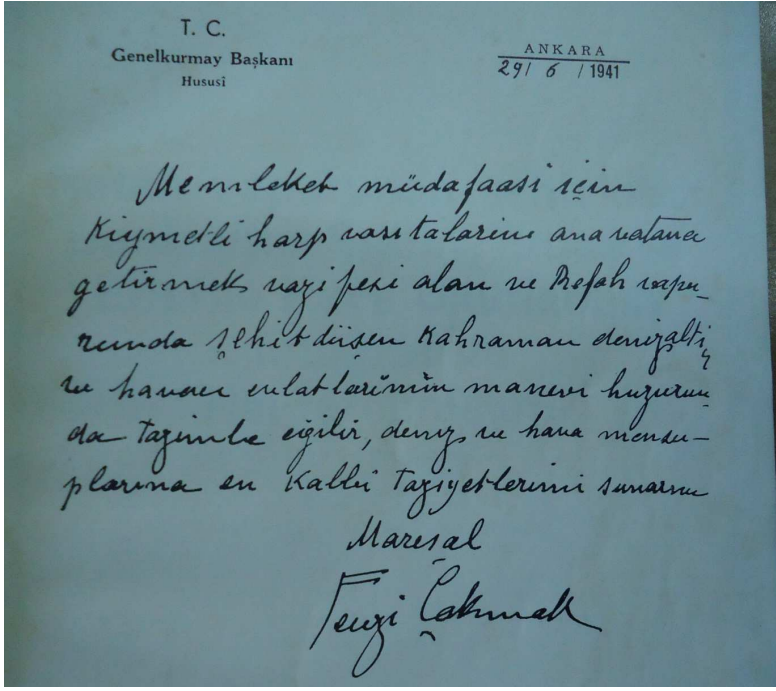 T. C.
Genelkurmay Başkanı
Hususî
ANKARA
29/ 6 / 1941
Memleket müdafaasi için
Kiymetli harp vasıtalarını ana vatana
getirmek vazifesi alan ve Refah vapu-
runda şehit düşen Kahraman denizalti,
ve havacı evlatlarïmïn manevi huzurun-
da tazimle eğilir, deniz ve hava mensu-
plarına en Kalbî taziyetlerimi sunarım
Mareşal
Fevzi Çakmak